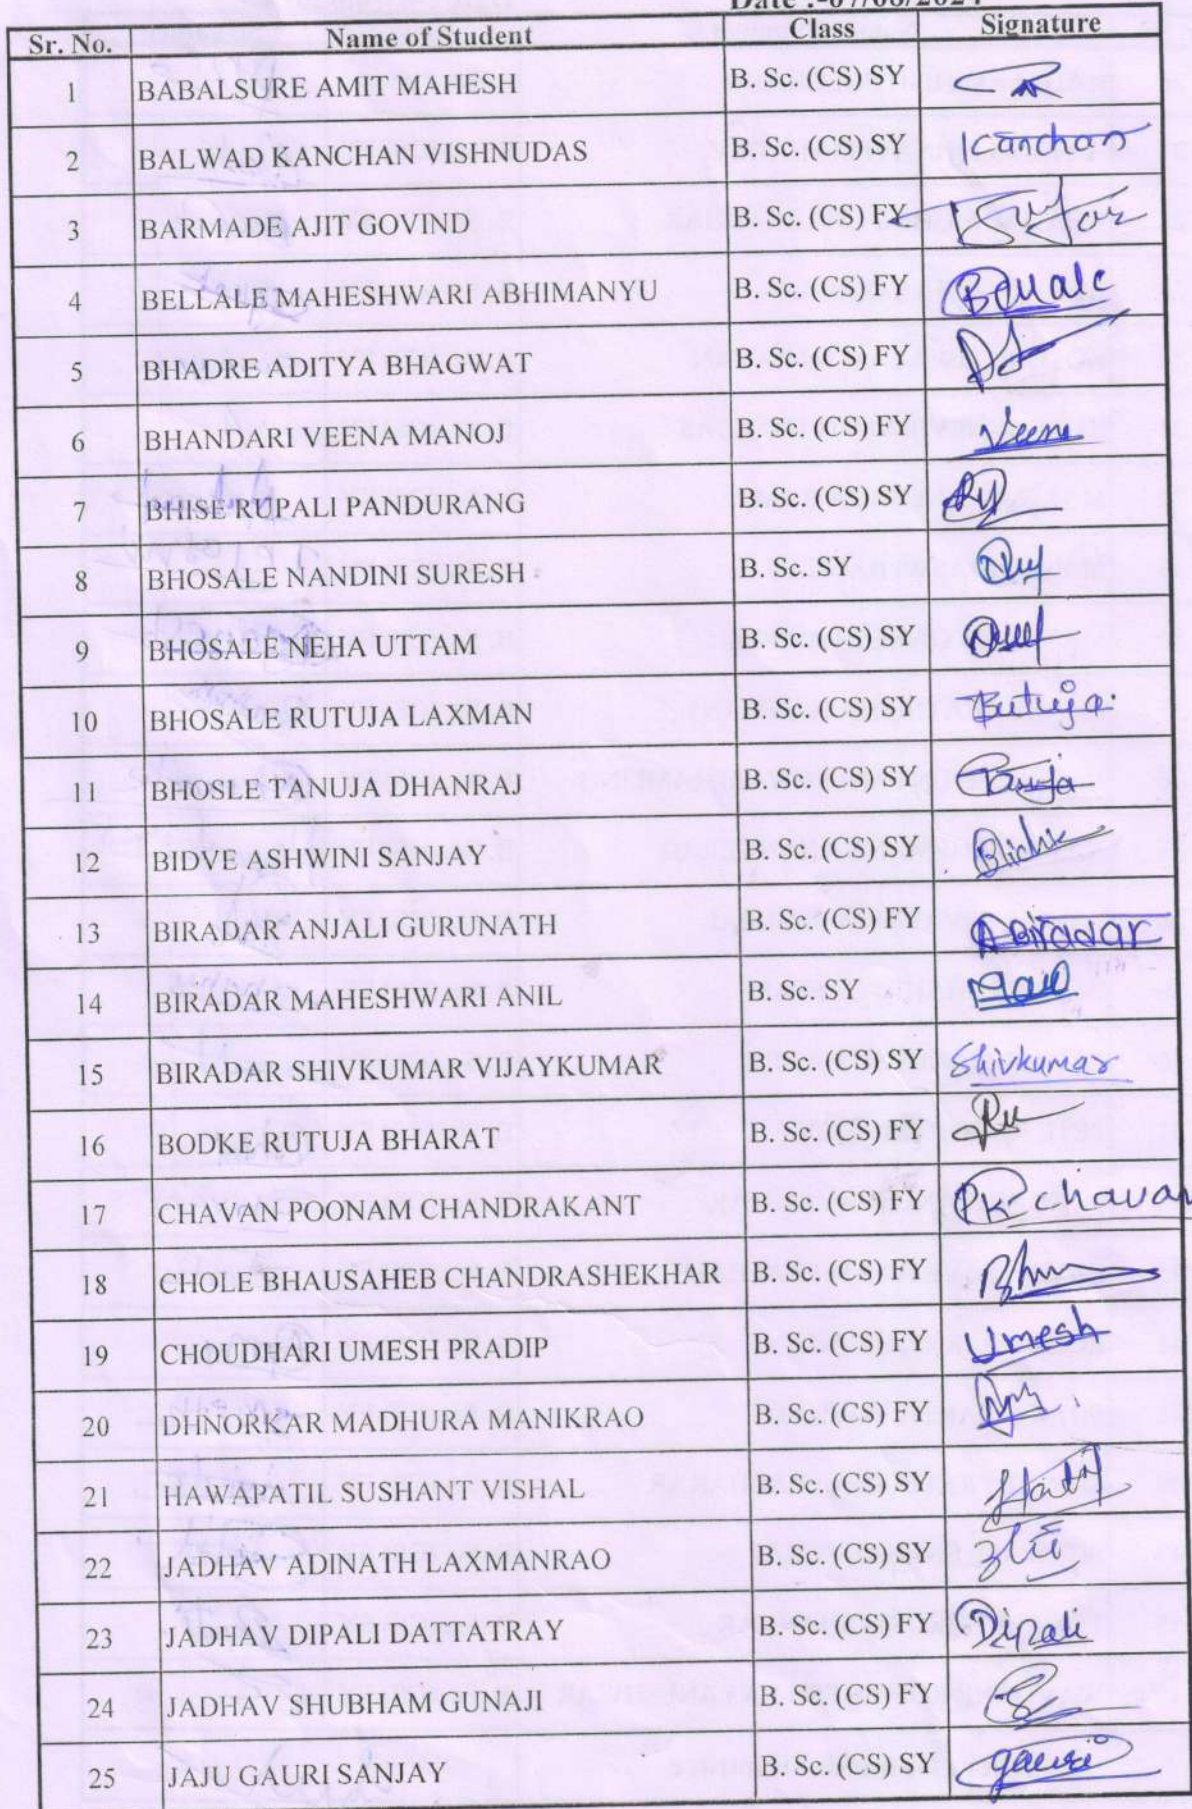 Sr. No. Name of Student Class Signature
1 BABALSURE AMIT MAHESH B. Sc. (CS) SY
2 BALWAD KANCHAN VISHNUDAS B. Sc. (CS) SY Kanchan
3 BARMADE AJIT GOVIND B. Sc. (CS) FY
4 BELLALE MAHESHWARI ABHIMANYU B. Sc. (CS) FY
5 BHADRE ADITYA BHAGWAT B. Sc. (CS) FY
6 BHANDARI VEENA MANOJ B. Sc. (CS) FY Veena
7 BHISE RUPALI PANDURANG B. Sc. (CS) SY
8 BHOSALE NANDINI SURESH B. Sc. SY
9 BHOSALE NEHA UTTAM B. Sc. (CS) SY
10 BHOSALE RUTUJA LAXMAN B. Sc. (CS) SY Rutuja
11 BHOSLE TANUJA DHANRAJ B. Sc. (CS) SY
12 BIDVE ASHWINI SANJAY B. Sc. (CS) SY
13 BIRADAR ANJALI GURUNATH B. Sc. (CS) FY ABiradar
14 BIRADAR MAHESHWARI ANIL B. Sc. SY
15 BIRADAR SHIVKUMAR VIJAYKUMAR B. Sc. (CS) SY Shivkumar
16 BODKE RUTUJA BHARAT B. Sc. (CS) FY
17 CHAVAN POONAM CHANDRAKANT B. Sc. (CS) FY chavan
18 CHOLE BHAUSAHEB CHANDRASHEKHAR B. Sc. (CS) FY
19 CHOUDHARI UMESH PRADIP B. Sc. (CS) FY Umesh
20 DHNORKAR MADHURA MANIKRAO B. Sc. (CS) FY
21 HAWAPATIL SUSHANT VISHAL B. Sc. (CS) SY
22 JADHAV ADINATH LAXMANRAO B. Sc. (CS) SY
23 JADHAV DIPALI DATTATRAY B. Sc. (CS) FY Dipali
24 JADHAV SHUBHAM GUNAJI B. Sc. (CS) FY
25 JAJU GAURI SANJAY B. Sc. (CS) SY gauri